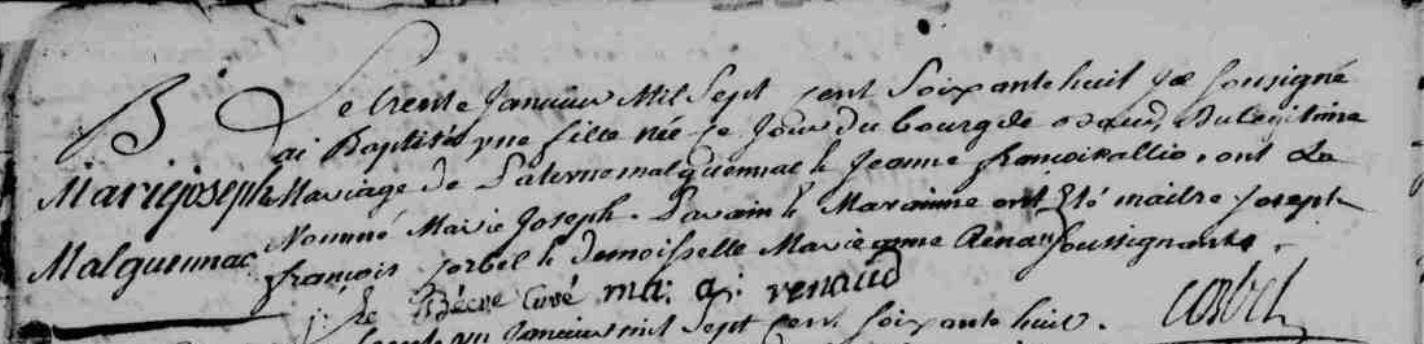 B
Marie joseph
Malguennac
Le trente Janvier Mil Sept Cent Soixante huit je Soussigné
ai Baptisé une fille née ce Jour du bourg de Du Legitime
Mariage de Paterne malguennac & Jeanne francoise allio, ont La
Nommé Marie Joseph. Parain & Maraine ont Eté maitre Joseph
françois Corbel & demoisselle Marie anne Renau Soussignants.
j: Le Bécre Curé ma: a: renaud
corbel
trente un Janvier mil Sept Cent Soixante huit.